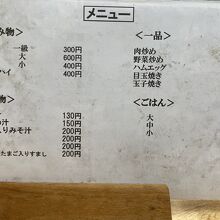 メニュー
み物>
一級 300円
大 600円
小 400円
ハイ 400円
物>
130円
汁 150円
入りみそ汁 200円
200円
200円
たまご入りすまし 200円
<一品>
肉炒め
野菜炒め
ハムエッグ
目玉焼き
玉子焼き
<ごはん>
大
中
小